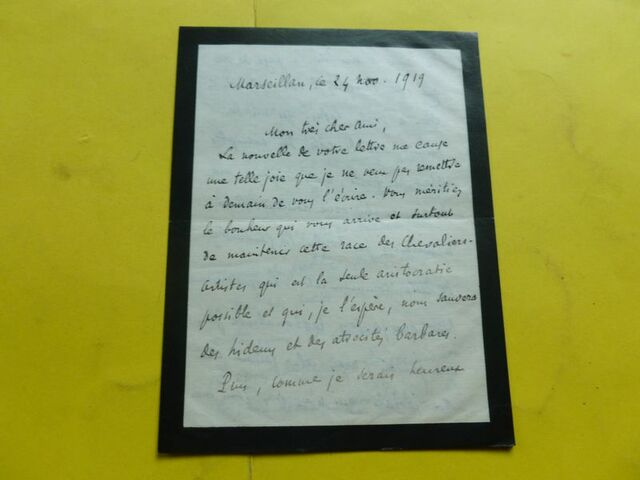 Marseillan, le 24 nov. 1919
Mon très cher ami,
La nouvelle de votre lettre me cause
une telle joie que je ne veux pas remettre
à demain de vous l'écrire. Vous méritiez
le bonheur qui vous arrive et surtout
de maintenir cette race des Chevaliers-
artistes qui est la seule aristocratie
possible et qui, je l'espère, nous sauvera
des hideurs et des atrocités barbares.
Puis, comme je serais heureux